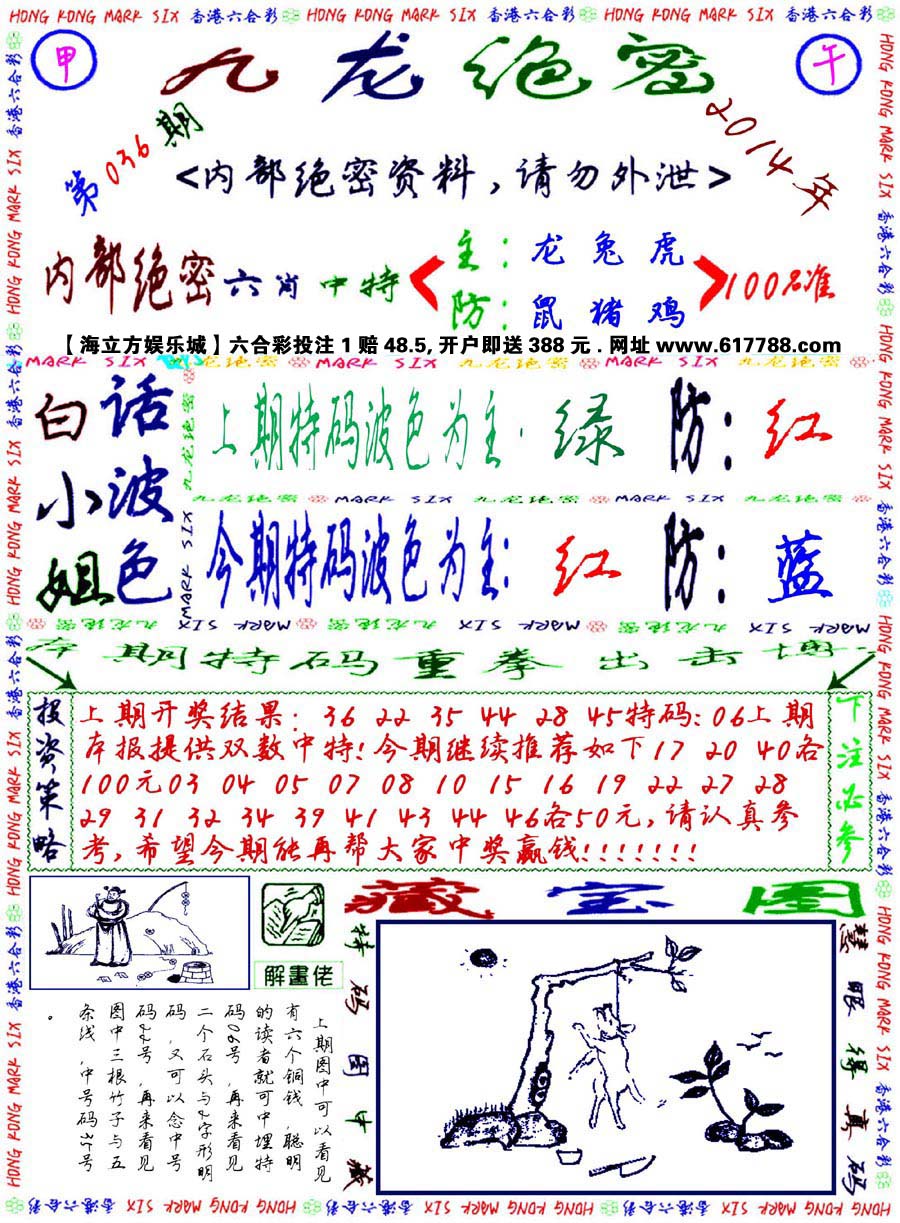 HONG KONG MARK SIX 香港六合彩 HONG KONG MARK SIX 香港六合彩 HONG KONG MARK SIX 香港六合彩 HONG KONG MARK SIX 香港六合彩
甲
九龙绝密
午
第036期
2014年
<内部绝密资料,请勿外泄>
内部绝密六肖中特
主:龙兔虎
防:鼠猪鸡
100%准
【海立方娱乐城】六合彩投注1赔48.5,开户即送388元.网址www.617788.com
MARK SIX 九龙绝密 MARK SIX 九龙绝密 MARK SIX 九龙绝密
白小姐
话波色
上期特码波色为主:绿 防:红
九龙绝密 MARK SIX 九龙绝密 MARK SIX 九龙绝密
今期特码波色为主:红 防:蓝
本期特码重拳出击博
投资策略
上期开奖结果:36 22 35 44 28 45特码:06上期
本报提供双数中特!今期继续推荐如下17 20 40各
100元03 04 05 07 08 10 15 16 19 22 27 28
29 31 32 34 39 41 43 44 46各50元,请认真参
考,希望今期能再帮大家中奖赢钱!!!!!!!
下注必参
解畫佬
藏宝图
特码图中藏
慧眼得真码
上期图中可以看见
有六个铜钱,聪明
的读者就可中埋特
码06号,再来看见
二个石头与2字形明
码,又可以念中号
码22号,再来看见
图中三根竹子与五
条线,中号码35号
。
HONG KONG MARK SIX 香港六合彩 HONG KONG MARK SIX 香港六合彩 HONG KONG MARK SIX 香港六合彩